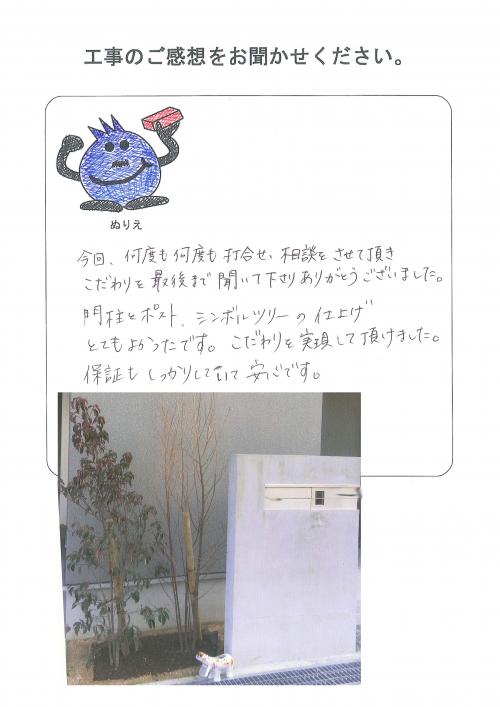 工事のご感想をお聞かせください。
ぬりえ
今回、何度も何度も打合せ、相談をさせて頂き
こだわりを最後まで聞いて下さりありがとうございました。
門柱とポスト、シンボルツリーの仕上げ
とてもよかったです。こだわりを実現して頂けました。
保証もしっかりしていて安心です。